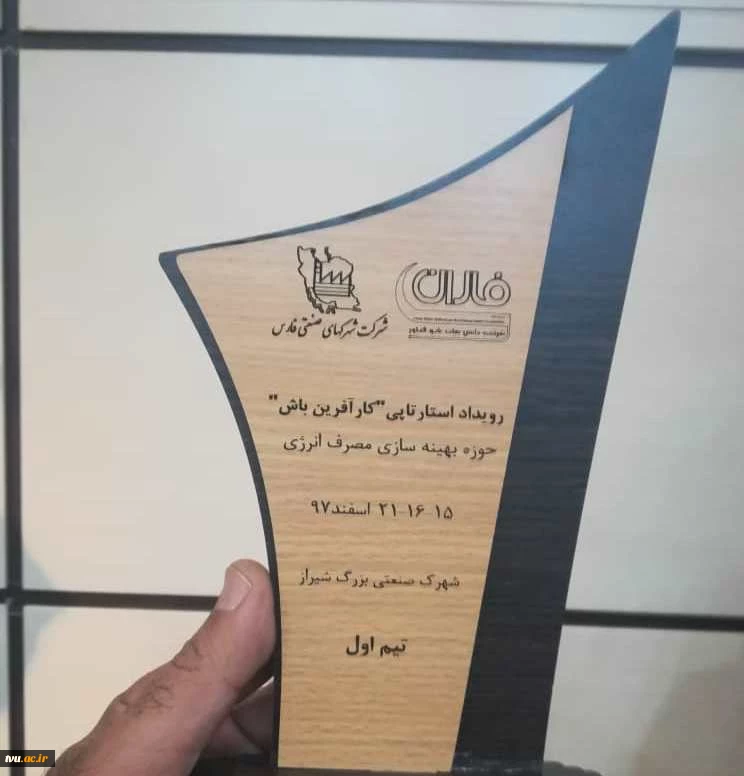 فاران
شرکت شهرکهای صنعتی فارس
رویداد استارتاپی "کارآفرین باش"
حوزه بهینه سازی مصرف انرژی
۱۵-۱۶-۲۱ اسفند۹۷
شهرک صنعتی بزرگ شیراز
تیم اول
tvu.ac.ir